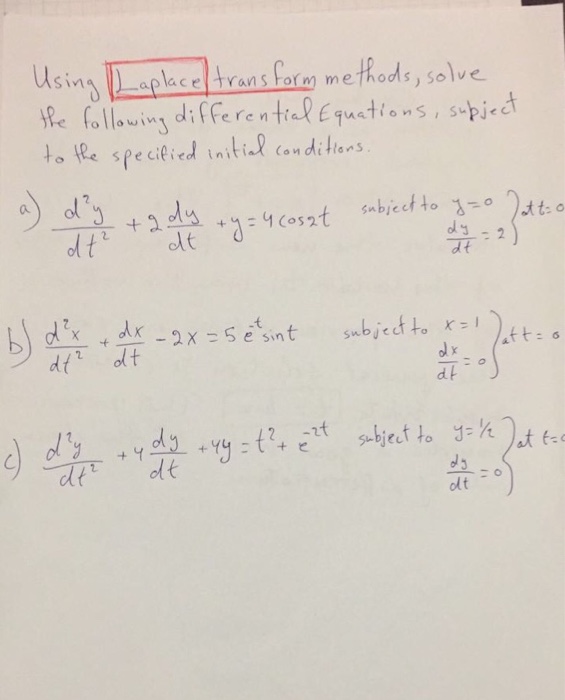 Using Laplace transform methods, solve
the following differential Equations, subject
to the specified initial conditions.
a) d²y/dt² + 2 dy/dt + y = 4 cos2t subject to y = 0, dy/dt = 2 } at t = 0
b) d²x/dt² + dx/dt - 2x = 5 e^-t sint subject to x = 1, dx/dt = 0 } at t = 0
c) d²y/dt² + 4 dy/dt + 4y = t² + e^-2t subject to y = 1/2, dy/dt = 0 } at t = 0